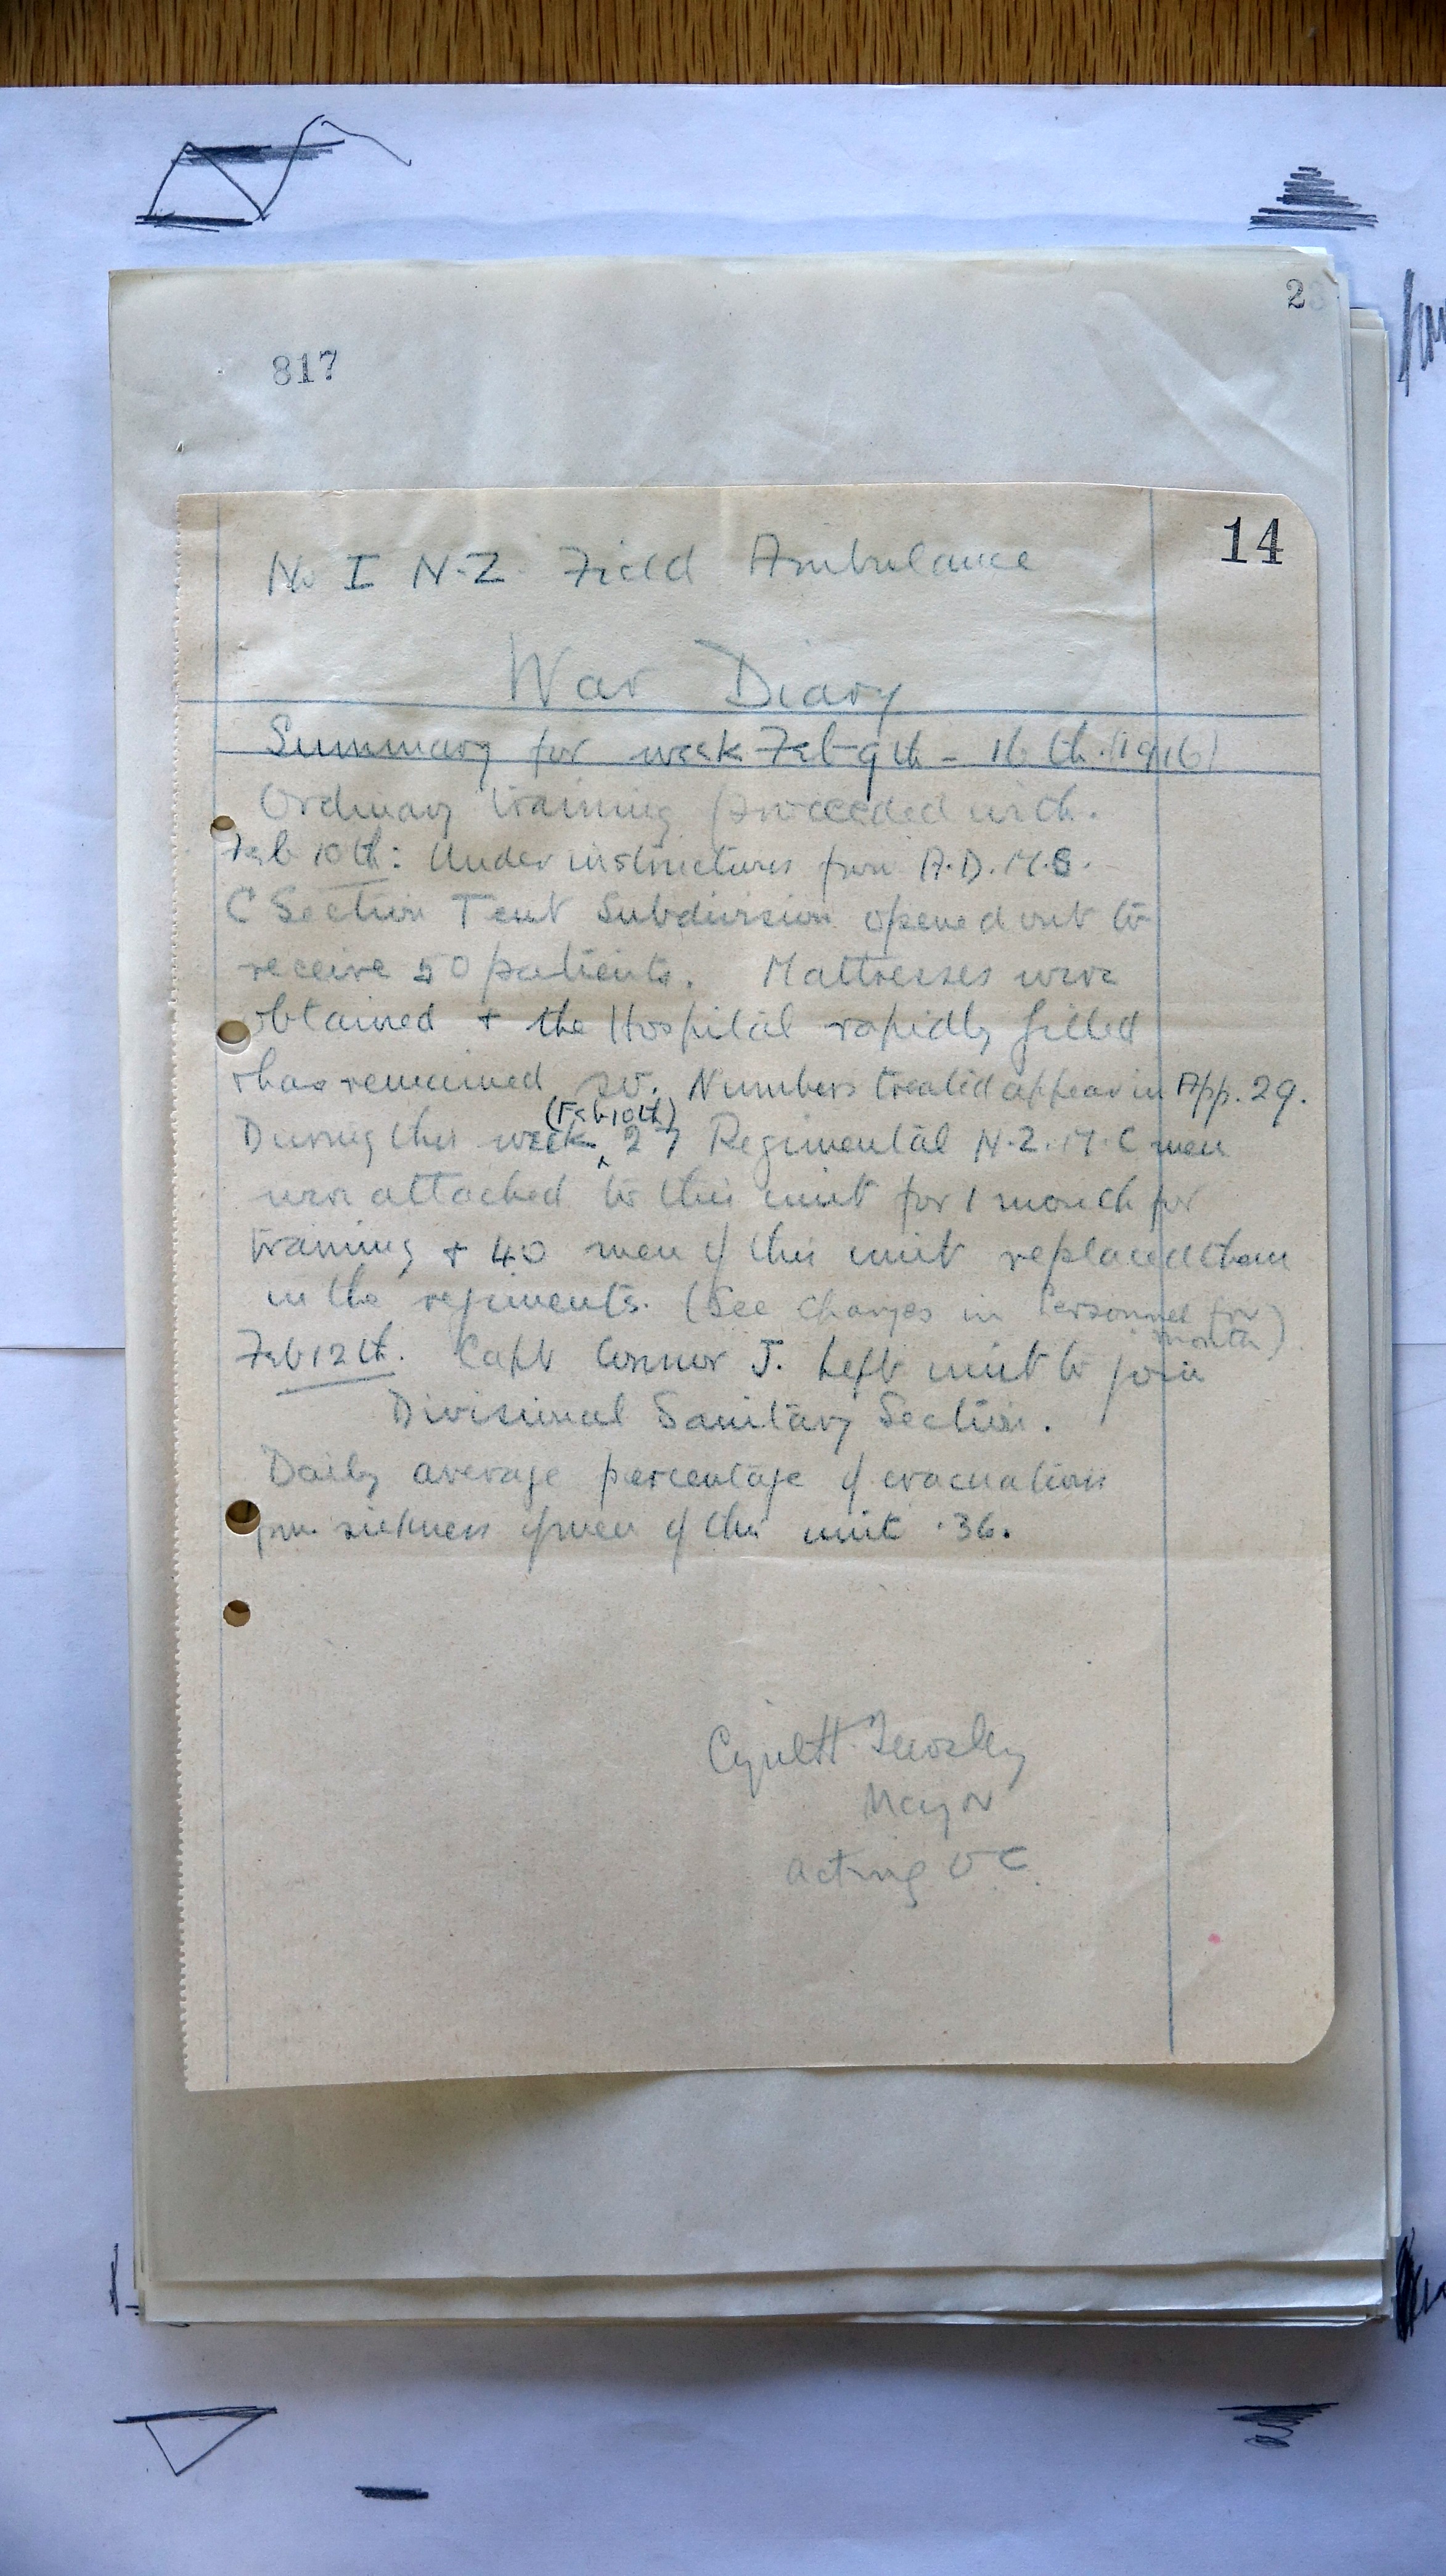 28
817
14
No I N.Z. Field Ambulance
War Diary
Summary for week Feb 9th - 16th (1916)
Ordinary training proceeded with.
Feb 10th: Under instructions from A.D.M.S.
C Section Tent Subdivision opened out to
receive 50 patients. Mattresses were
obtained + the Hospital rapidly filled
+ has remained so. Numbers treated appear in App. 29.
(Feb 10th)
During this week 27 Regimental N.Z.M.C men
were attached to this unit for 1 month for
training + 40 men of this unit replaced them
in the regiments. (See changes in Personnel for
month)
Feb 12th. Capt Connor J. left unit to join
Divisional Sanitary Section.
Daily average percentage of evacuations
from sickness of men of this unit .36.
Major
acting O.C.